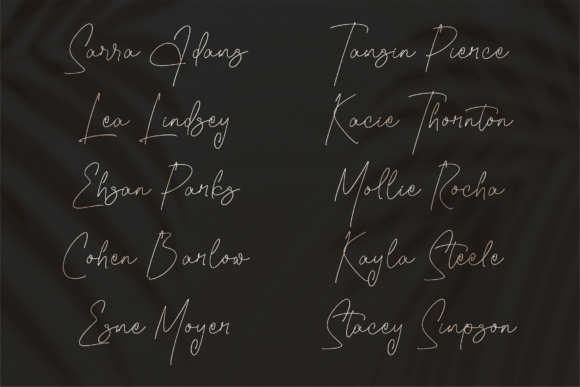 Sarra Adams
Tansin Pierce
Lea Lindsey
Kacie Thornton
Ehsan Parks
Mollie Rocha
Cohen Barlow
Kayla Steele
Esne Moyer
Stacey Simpson